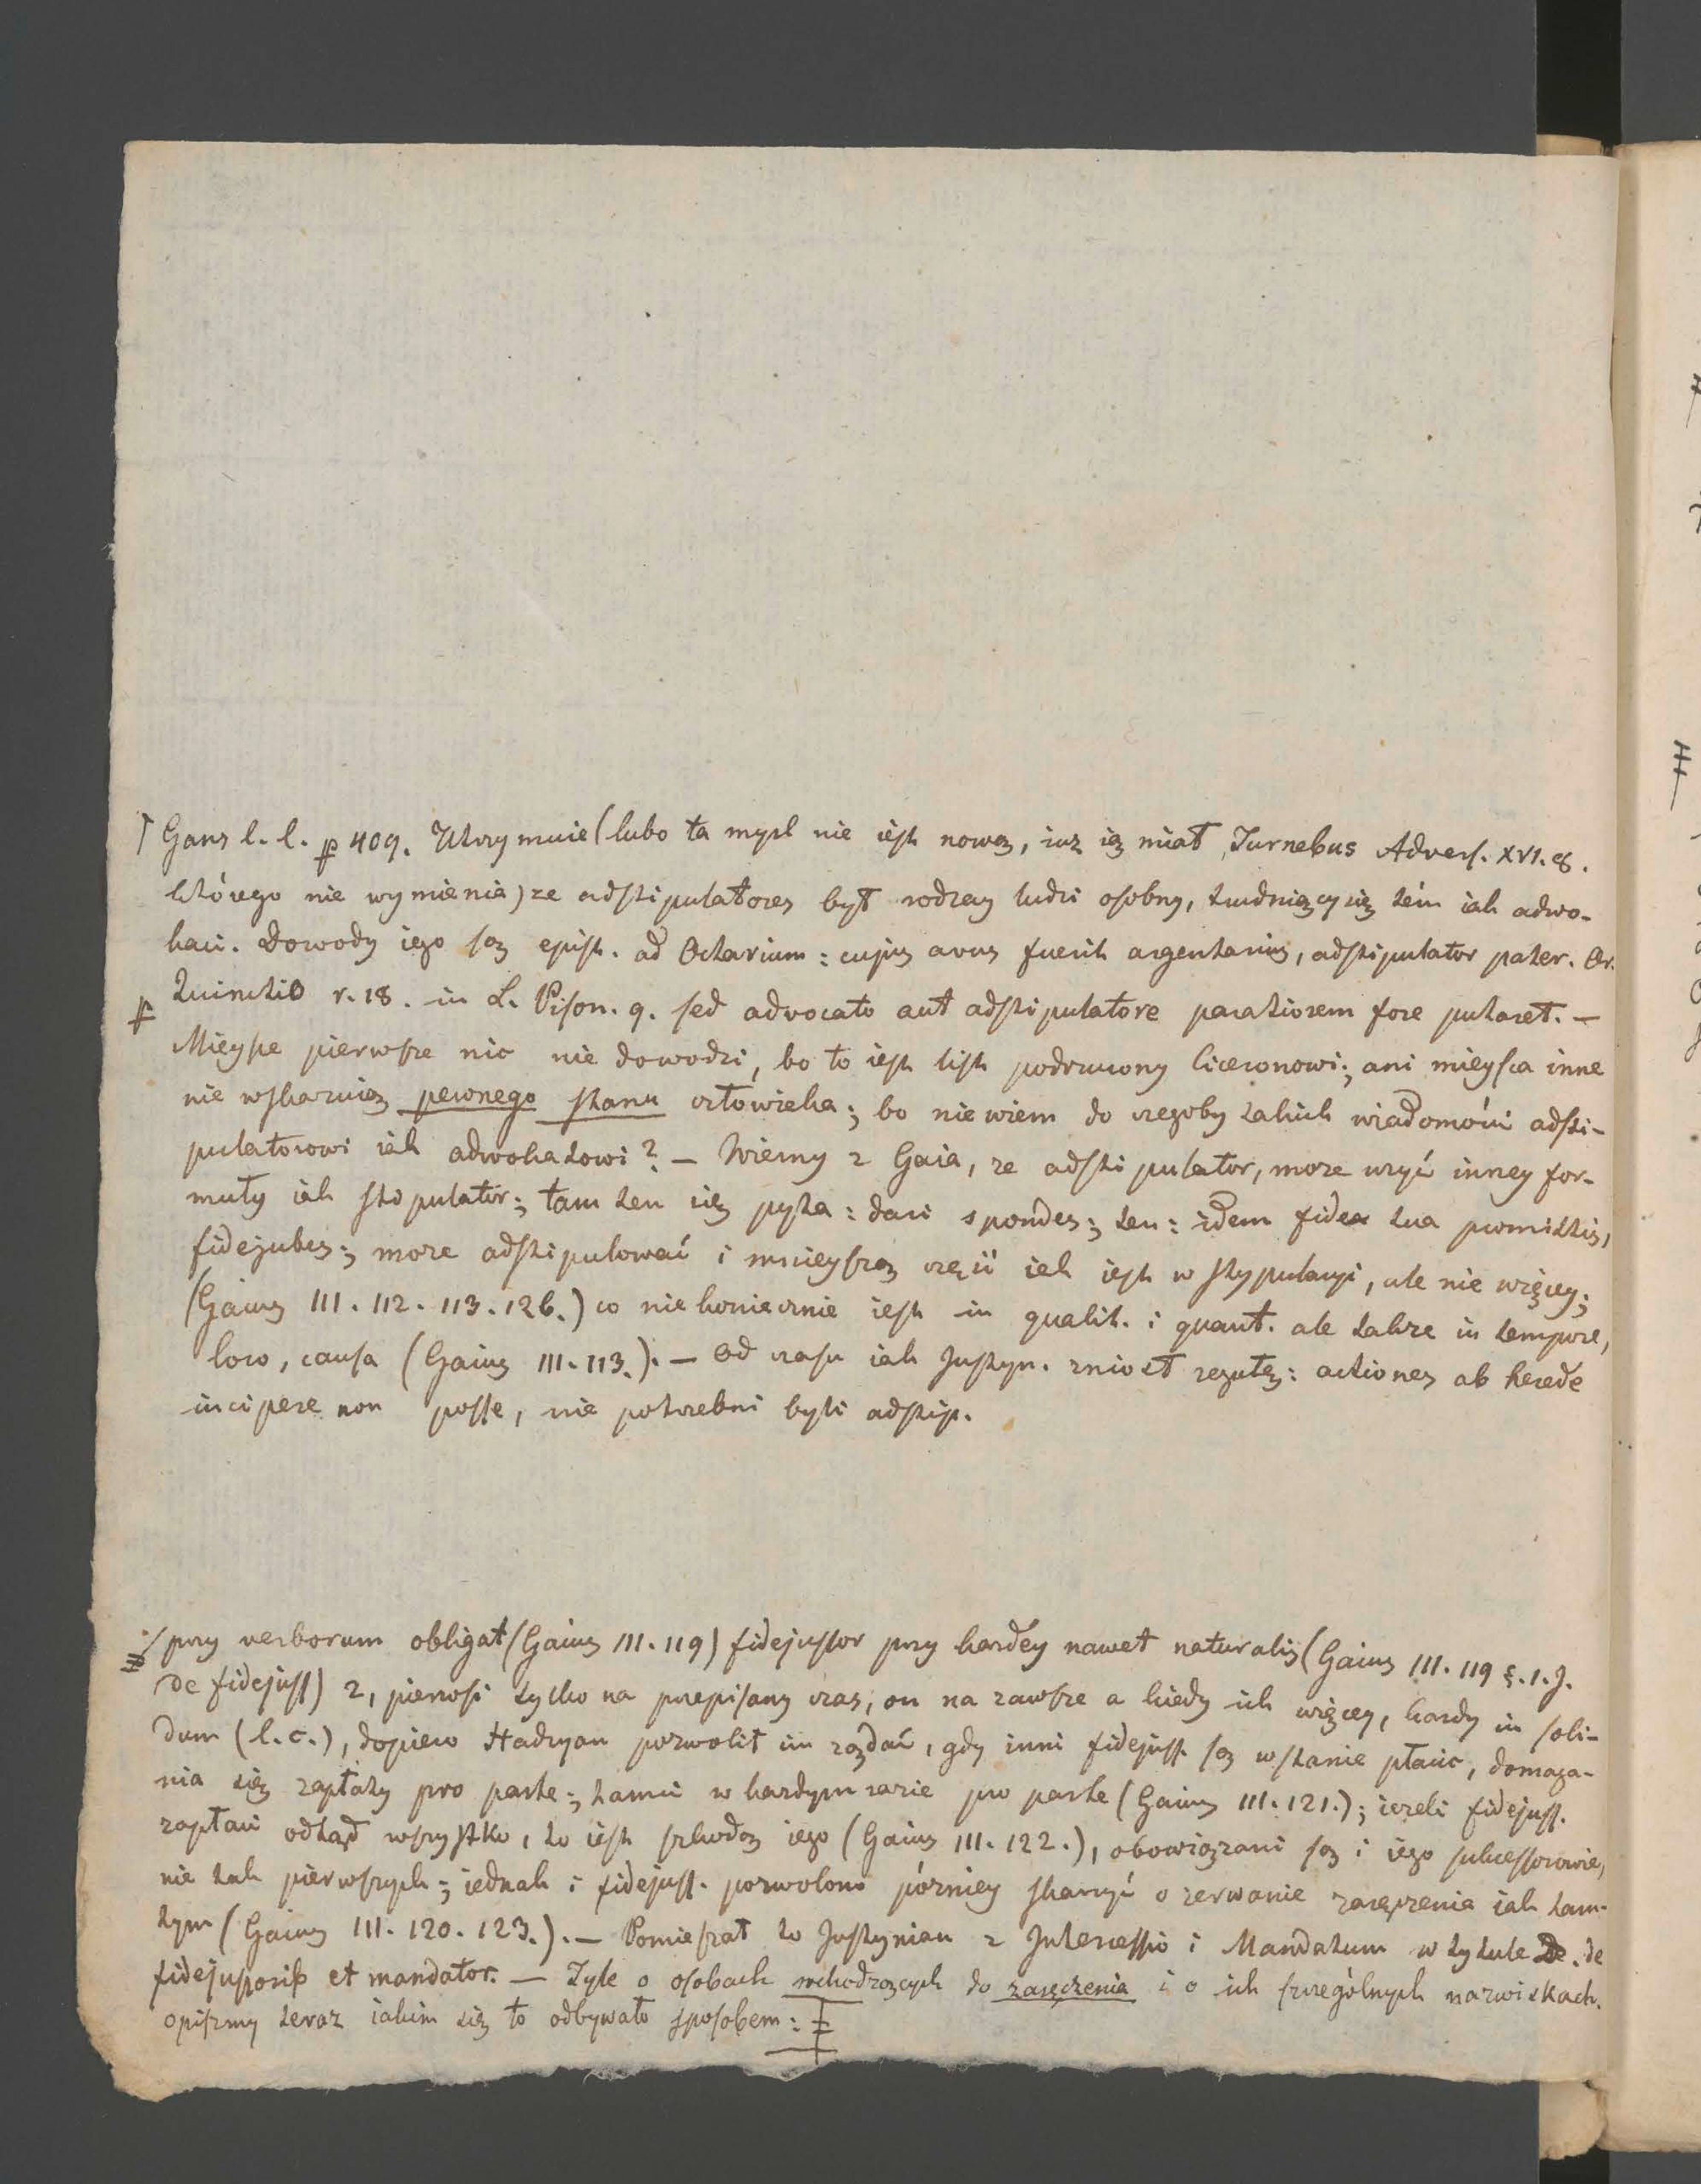 Gans l. l. p 409. Utrzymuie (lubo ta mysl nie iest nową, iuz ią miał Turnebus Advers. XVI. 8.
którego nie wymienia) ze adstipulatores był rodzay ludzi osobny, trudniący się tém iak adwo-
kaci. Dowody iego są epist. ad Octavium: cujus avus fuerit argentarius, adstipulator pater. Or.
Quinctio r. 18. in L. Pison. 9. sed advocato aut adstipulatore paratiorem fore putaret. —
Mieysce pierwsze nic nie dowodzi, bo to iest list podrzucony Ciceronowi; ani mieysca inne
nie wskazuią pewnego stanu człowieka; bo nie wiem do czegoby takich wiadomości adsti-
pulatorowi iak adwokatowi? — Wiemy z Gaia, ze adstipulator, moze uzyć inney for-
muły iak stipulator; tam ten się pyta: dari spondes; ten: idem fidea tua promittis,
fidejubes; moze adstipulować i mnieyszą częić iak iest w stypulacyi, ale nie więcey;
(Gaius III. 112. 113. 126.) co niekoniecznie iest in qualit. i quant. ale takze in tempore,
loco, causa (Gaius III. 113.). — Od czasu iak Justyn. zniosł regułę: actiones ab herede
incipere non posse, nie potrzebni byli adstip.
przy verborum obligat (Gaius III. 119) fidejussor przy kazdey nawet naturalis (Gaius III. 119 §. 1. J.
de fidejuss) 2, pierwsi tylko na przepisany czas, on na zawsze a kiedy ich więcey, kazdy in soli-
dum (l. c.), dopiero Hadryan pozwolił im ządać, gdy inni fidejuss. są w stanie płacic, domaga-
nia się zapłaty pro parte; tamci w kazdym razie pro parte (Gaius III. 121.); iezeli fidejuss.
zapłaci odtąd wszystko, to iest szkodą iego (Gaius III. 122.), obowiązani są i iego sukcessorowie,
nie tak pierwszych; iednak i fidejuss. pozwolono pózniey skarzyć o zerwanie zaręczenia iak tam-
tym (Gaius III. 120. 123.). — Pomieszał to Justynian z Intercessio i Mandatum w tytule De. de
fidejussorib et mandator. — Tyle o osobach wchodzących do zaręczenia i o ich szczególnych nazwiskach.
opiszmy teraz iakim się to odbywało sposobem: